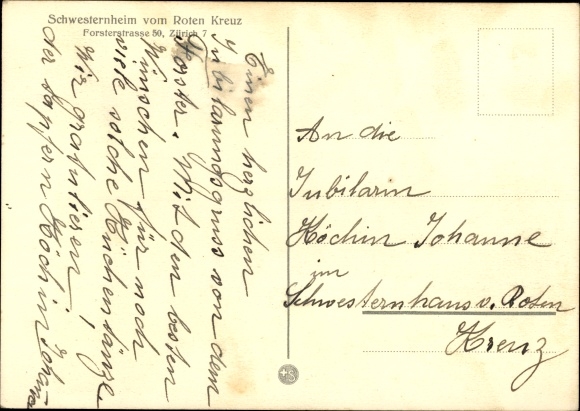 Schwesternheim vom Roten Kreuz
Forsterstrasse 50, Zürich 7
Einen herzlichen
Jubilarundsgruss von dem
Forster. Mit den besten
Wünschen für noch
viele solche Küchentänze
Wir gratulieren!
der tapfern Köchin Johanna
An die
Jubilarin
Köchin Johanne
im
Schwesternhaus v. Roten
Kreuz